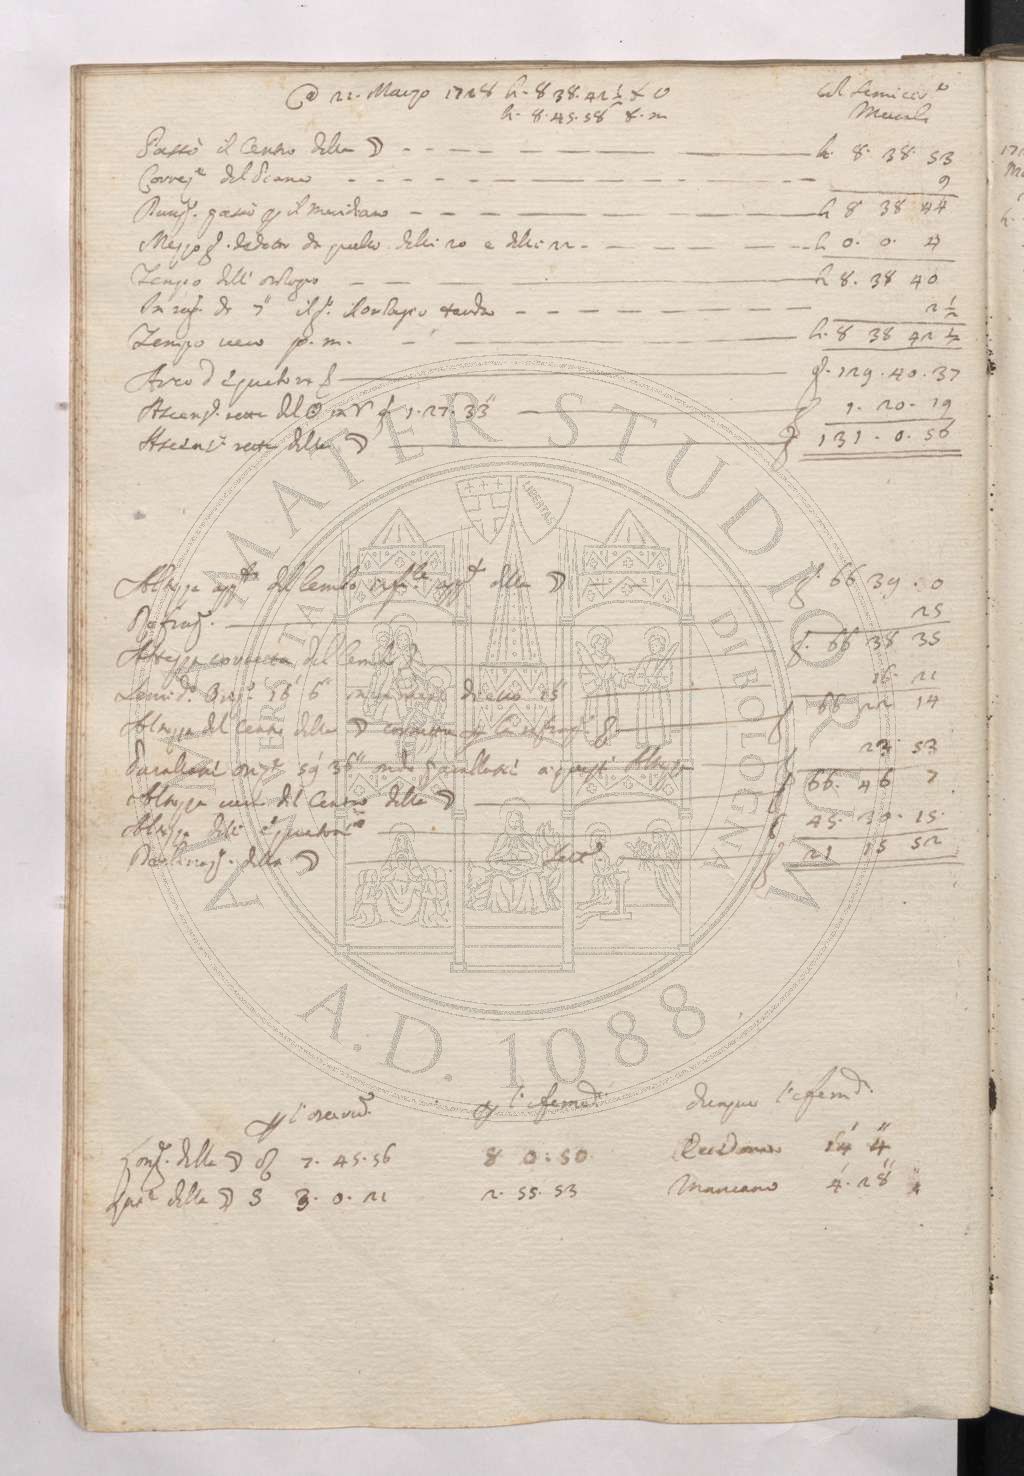 A dì 21. Marzo 1728 h. 8 38. 42 ½ t. v al Semicir.º
h. 8. 45. 58 t. m Murale
Passò il Centro della ☽ h. 8. 38. 53
Correz.e del Piano 9
Dunq. passò p il meridiano h 8 38 44
Mezzo g. dedotto da quello delli 20 e delli 22. h 0. 0. 4
Tempo dell' orologio h 8. 38 40
In rag. di 7" il g. l'orologio tarda 2 ½
Tempo vero p. m. h. 8 38 42 ½
Arco d'Equatore g. 129. 40. 37
Ascens. retta del ☉ in ♈ g 1. 27. 33" 1. 20. 19
Ascens.e retta della ☽ g 131. 0. 56
Altezza app.te del lembo della ☽ g. 66 39. 0
Refraz. 25
Altezza corretta del lembo g. 66 38 35
Semid.o Oriz. 16' 6" 15" 16. 21
Altezza del Centro della ☽ corretta p la refraz. g 66 22 14
Parallassi oriz.e 59' 36" parallassi a questa Altezza 23 53
Altezza vera del Centro della ☽ g 66. 46 7
Altezza dell' Equatore g 45. 30. 15.
Declinaz. della ☽ Sett.e g 21 15 52
p l'osservaz. p l'efemeridi dunque l'efemeridi
Long. della ☽ ♌ 7. 45. 56 8 0. 50 Eccedono 14' 4"
Lat.e della ☽ S 3. 0. 21 2. 55. 53 Mancano 4'. 28"
ALMA MATER STUDIORUM
UNIVERSITÀ DI BOLOGNA
LIBERTAS
A.D. 1088